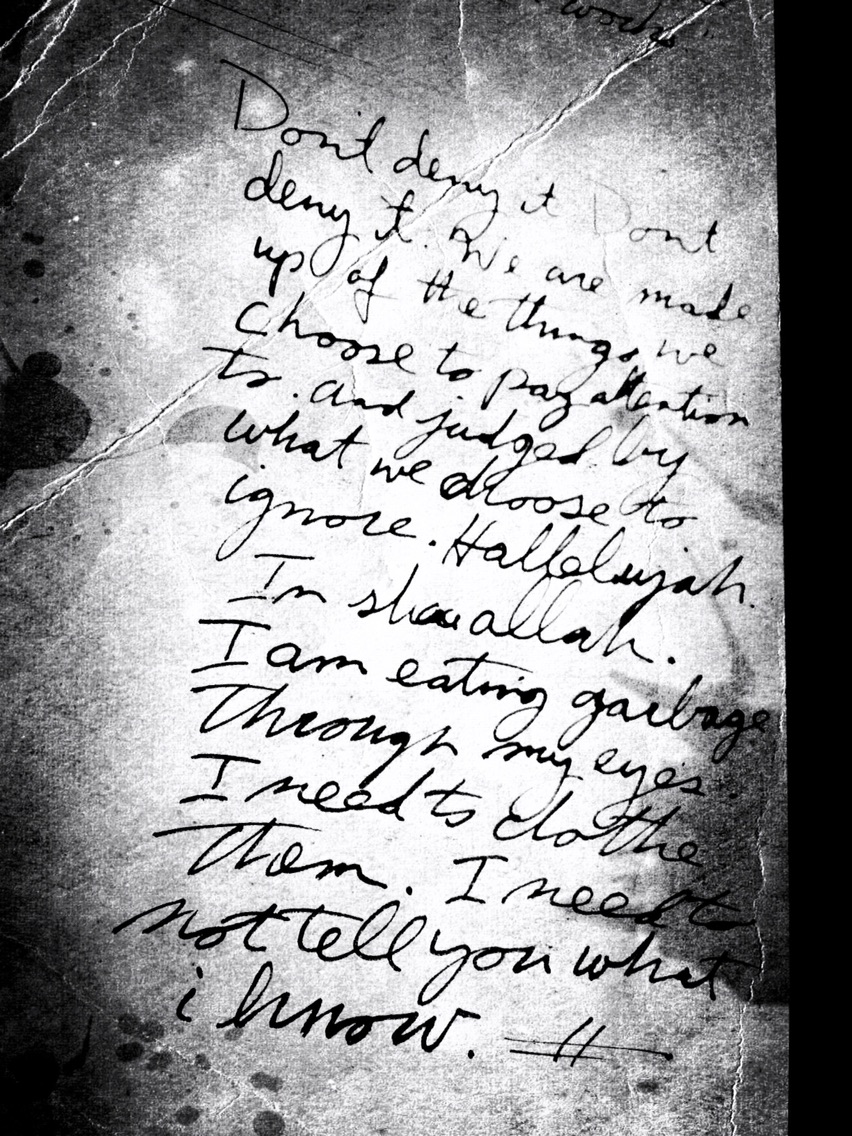 words
Don't deny it Dont
deny it. We are made
up of the things we
choose to pay attention
to. And judged by
what we choose to
ignore. Hallelujah.
In shaiallah.
I am eating garbage
Through my eyes
I need to clothe
Them. I need to
not tell you what
i know.